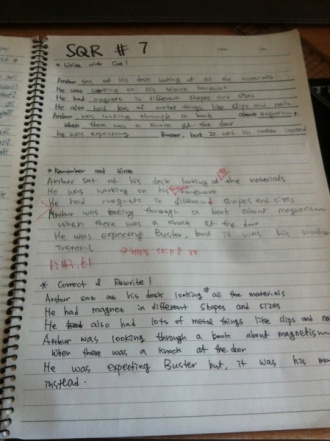 SQR # 7
* Write with Cue!
Arthur sat at his desk looking at all the materials
He was working on his science homework
He had magnets in different shapes and sizes
He also had lots of metal things like clips and nails
Arthur was looking through a book about magnetism
When there was a knock at the door
He was expecting Buster, but it was his instead
* Remember and Write
Arthur sat at his desk looking at the materials
He was working on his work
He had magnets in different shapes and sizes
Arthur was looking through a book about magnetism
when there was a knock at the door
He was expecting Buster, but it was his
instead
* Correct & Rewrite!
Arthur sat at his desk looking at all the materials
He had magnets in different shapes and sizes
He also had lots of metal things like clips and
Arthur was looking through a book about magnetism
When there was a knock at the door
He was expecting Buster but, it was his
instead.